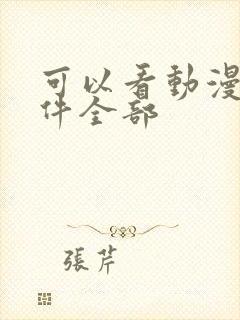 可以看動漫
件全部
張芹